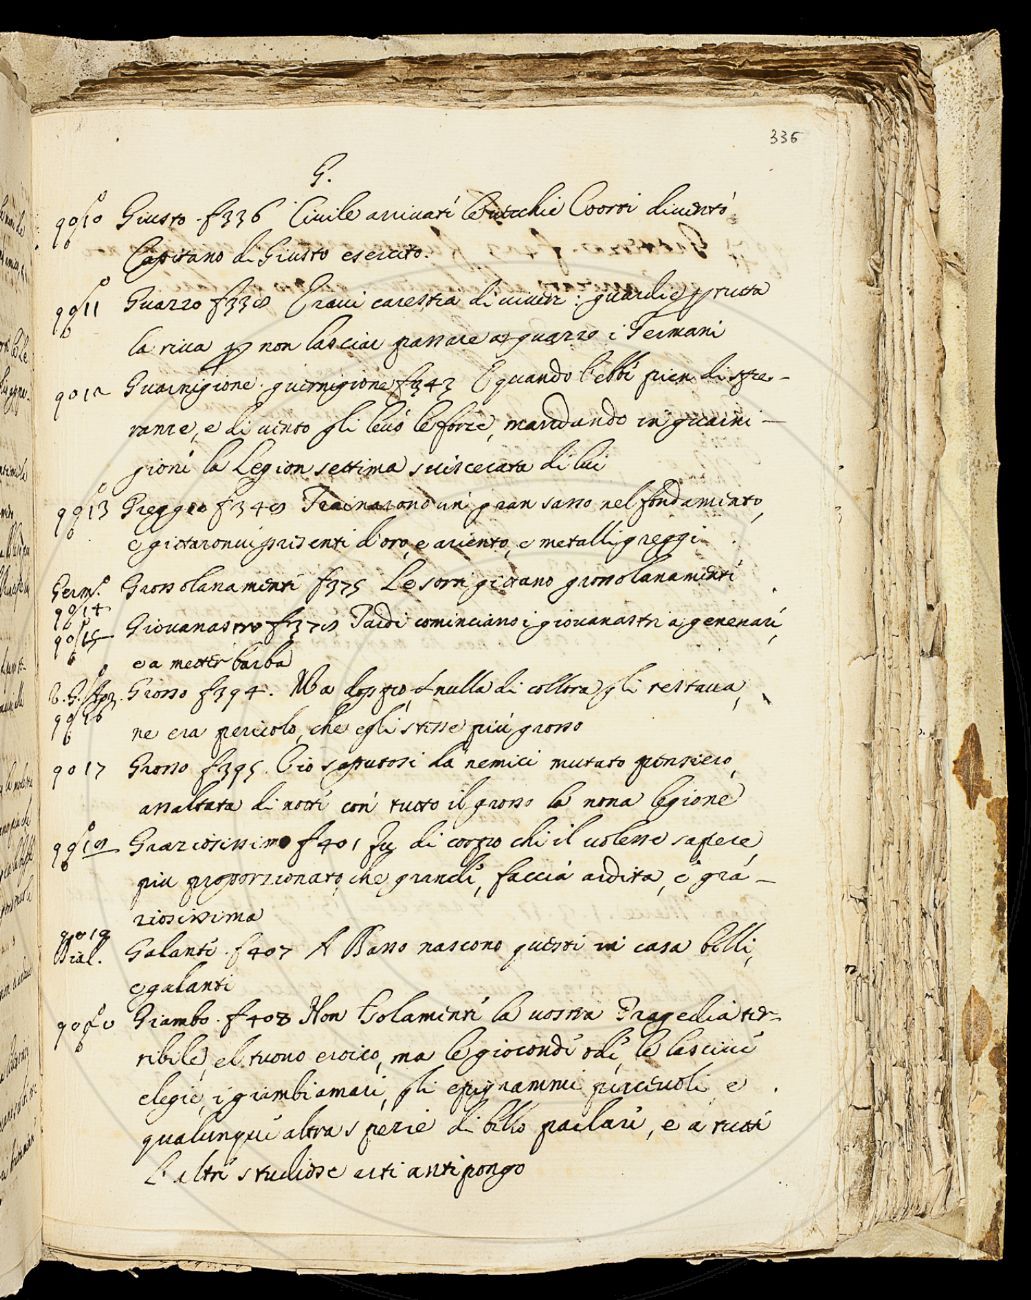 336
G.
9010 Giusto. f336 Civile arrivati le vecchie Coorti diventò
Capitano di Giusto esercito.
9011 Guazzo f338 Eravi carestia di viveri: guardie per tutta
la riva per non lasciar passare a guazzo i Germani
9012 Guarnigione. guernigione f343 E quando l'ebbe pien di spe-
ranze, e di vento gli levò le forze, mandando in guarni-
gioni la Legion settima sviscerata di lui
9013 Greggio f348 Trainarono un gran sasso nel fondamento,
e gittaronvi presenti d'oro, e ariento, e metalli greggi
Germ.
9014 Grossolanamente f375 Le sorti gittano grossolanamente
9015 Giovanastro f378 Tardi cominciano i giovanastri a generare,
e a metter barba
9016 Grosso f394. Ma doppio, e nulla di collora gli restava,
ne era pericolo, che egli stesse più grosso
9017 Grosso f395. Ciò saputosi da nemici mutato pensiero,
assaltata di notte con tutto il grosso la nona legione
9018 Graziosissimo f401 Fu di corpo chi il volesse sapere,
più proporzionato, che grande, faccia ardita, e gra-
ziosissima
9019
Dial. Galante. f407 A Basso nascono questi in casa belli,
e galanti
9020 Giambo. f408 Non solamente la vostra Tragedia ter-
ribile, e'l tuono eroico, ma le gioconde ode, le lascive
elegie, i giambi amari, gli epigrammi piacevoli, e
qualunque altra spezie di bello parlare, e a tutte
l'altre studiose arti antipongo